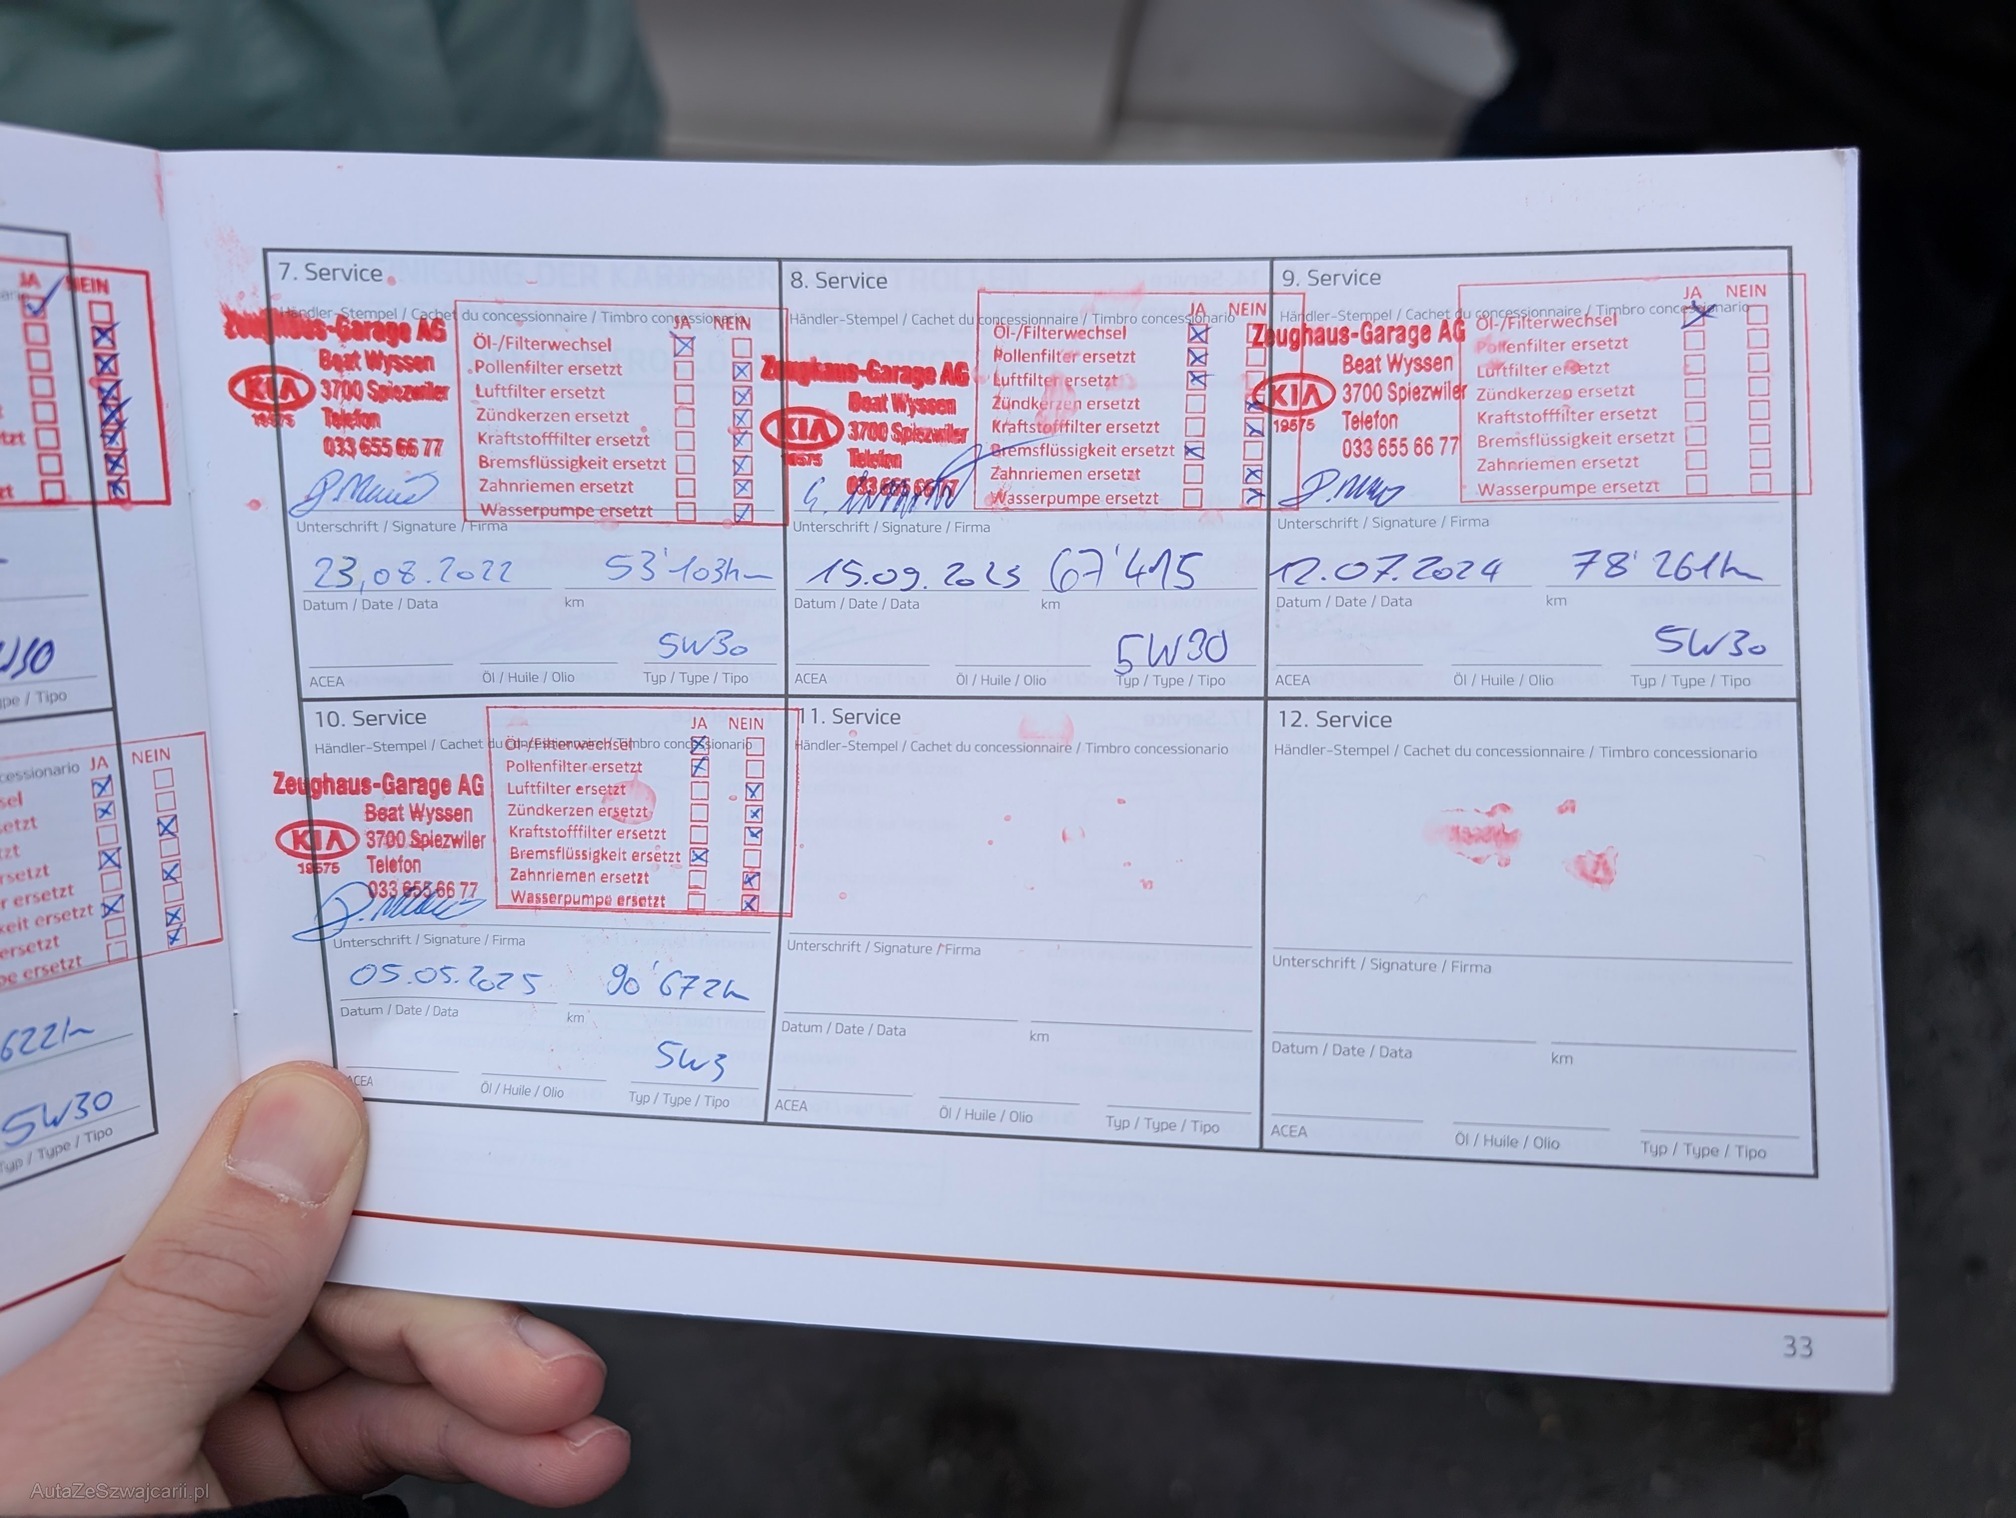 JA NEIN
W30
Typ / Type / Tipo
JA NEIN
622km
5W30
Typ / Type / Tipo
7. Service
Händler-Stempel / Cachet du concessionnaire / Timbro concessionario
JA NEIN
Zeughaus-Garage AG
Beat Wyssen
KIA
3700 Spiezwiler
19575
Telefon
033 655 66 77
Öl-/Filterwechsel
Pollenfilter ersetzt
Luftfilter ersetzt
Zündkerzen ersetzt
Kraftstofffilter ersetzt
Bremsflüssigkeit ersetzt
Zahnriemen ersetzt
Wasserpumpe ersetzt
Unterschrift / Signature / Firma
23.08.2022 53'103km
Datum / Date / Data km
5W30
ACEA Öl / Huile / Olio Typ / Type / Tipo
8. Service
Händler-Stempel / Cachet du concessionnaire / Timbro concessionario
JA NEIN
Zeughaus-Garage AG
Beat Wyssen
KIA
3700 Spiezwiler
19575
Telefon
033 655 66 77
Öl-/Filterwechsel
Pollenfilter ersetzt
Luftfilter ersetzt
Zündkerzen ersetzt
Kraftstofffilter ersetzt
Bremsflüssigkeit ersetzt
Zahnriemen ersetzt
Wasserpumpe ersetzt
Unterschrift / Signature / Firma
15.09.2023 67'415
Datum / Date / Data km
5W30
ACEA Öl / Huile / Olio Typ / Type / Tipo
9. Service
Händler-Stempel / Cachet du concessionnaire / Timbro concessionario
JA NEIN
Zeughaus-Garage AG
Beat Wyssen
KIA
3700 Spiezwiler
19575
Telefon
033 655 66 77
Öl-/Filterwechsel
Pollenfilter ersetzt
Luftfilter ersetzt
Zündkerzen ersetzt
Kraftstofffilter ersetzt
Bremsflüssigkeit ersetzt
Zahnriemen ersetzt
Wasserpumpe ersetzt
Unterschrift / Signature / Firma
12.07.2024 78'261km
Datum / Date / Data km
5W30
ACEA Öl / Huile / Olio Typ / Type / Tipo
10. Service
Händler-Stempel / Cachet du concessionnaire / Timbro concessionario
JA NEIN
Zeughaus-Garage AG
Beat Wyssen
KIA
3700 Spiezwiler
19575
Telefon
033 655 66 77
Öl-/Filterwechsel
Pollenfilter ersetzt
Luftfilter ersetzt
Zündkerzen ersetzt
Kraftstofffilter ersetzt
Bremsflüssigkeit ersetzt
Zahnriemen ersetzt
Wasserpumpe ersetzt
Unterschrift / Signature / Firma
05.05.2025 90'672km
Datum / Date / Data km
5W3
ACEA Öl / Huile / Olio Typ / Type / Tipo
11. Service
Händler-Stempel / Cachet du concessionnaire / Timbro concessionario
Unterschrift / Signature / Firma
Datum / Date / Data km
ACEA Öl / Huile / Olio Typ / Type / Tipo
12. Service
Händler-Stempel / Cachet du concessionnaire / Timbro concessionario
Unterschrift / Signature / Firma
Datum / Date / Data km
ACEA Öl / Huile / Olio Typ / Type / Tipo
33
AutaZeSzwajcarii.pl